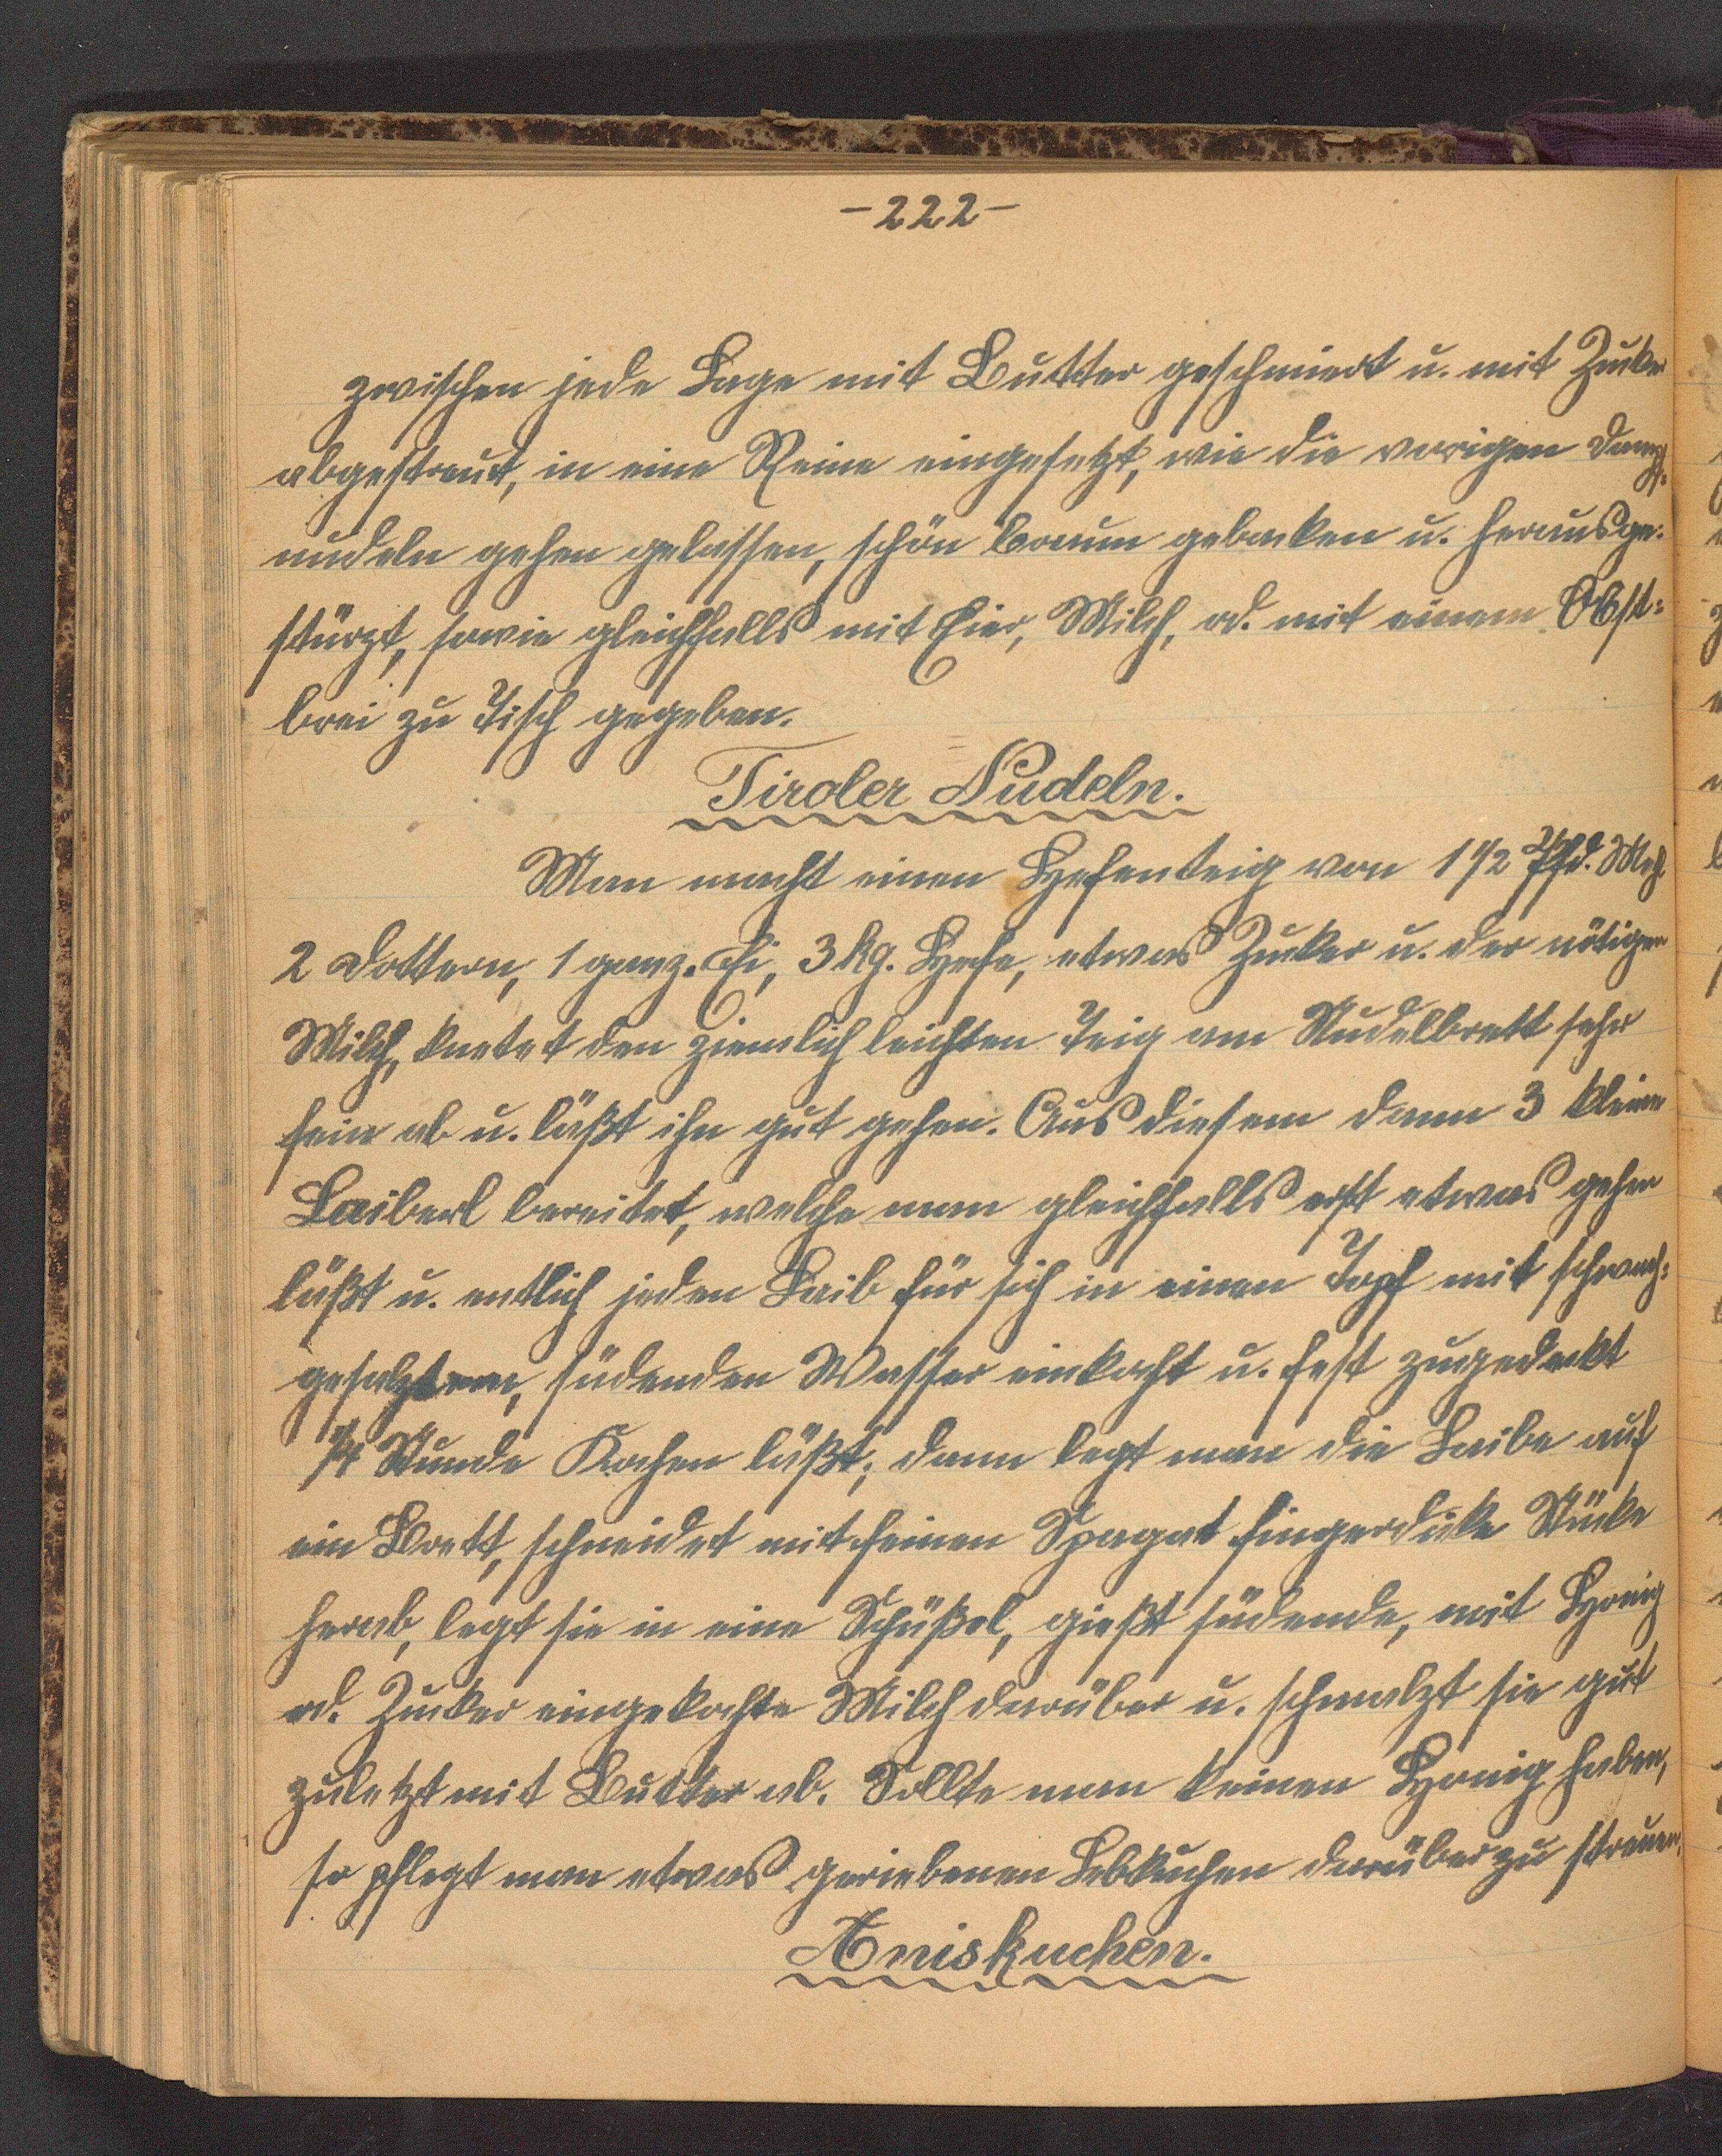 -222-
zwischen jede Lage mit Butter geschmiert u. mit Zucker
abgestreut, in eine Reine eingesetzt, wie die vorigen Dampf-
nudeln gehen gelassen, schön braun gebacken u. herausge-
stürzt, sowie gleichfalls mit Eier, Milch, od. mit einem Obst-
brei zu Tisch gegeben.
Tiroler Nudeln.
Man macht einen Hefenteig von 1 1/2 Pfd. Mehl
2 Dottern, 1 ganz. Ei, 3 kg. Hefe, etwas Zucker u. der nötigen
Milch, knetet den ziemlich leichten Teig am Nudelbrett sehr
fein ab u. läßt ihn gut gehen. Aus diesem dann 3 kleine
Laiberl bereitet, welche man gleichfalls erst etwas gehen
läßt u. entlich jeden Laib für sich in einen Topf mit schwach-
gesalzenen, südenden Wasser einkocht u. fest zugedeckt
1/4 Stunde Kochen läßt; dann legt man die Laibe auf
ein Brett, schneidet mit feinen Spagat fingerdicke Stücke
herab, legt sie in eine Schüßel, gießt südende, mit Honig
od. Zucker eingekochte Milch darüber u. schmalzt sie gut
zuletzt mit Butter ab. Sollte man keinen Honig haben,
so pflegt man etwas geriebenen Lebkuchen darüber zu streuen.
Aniskuchen.